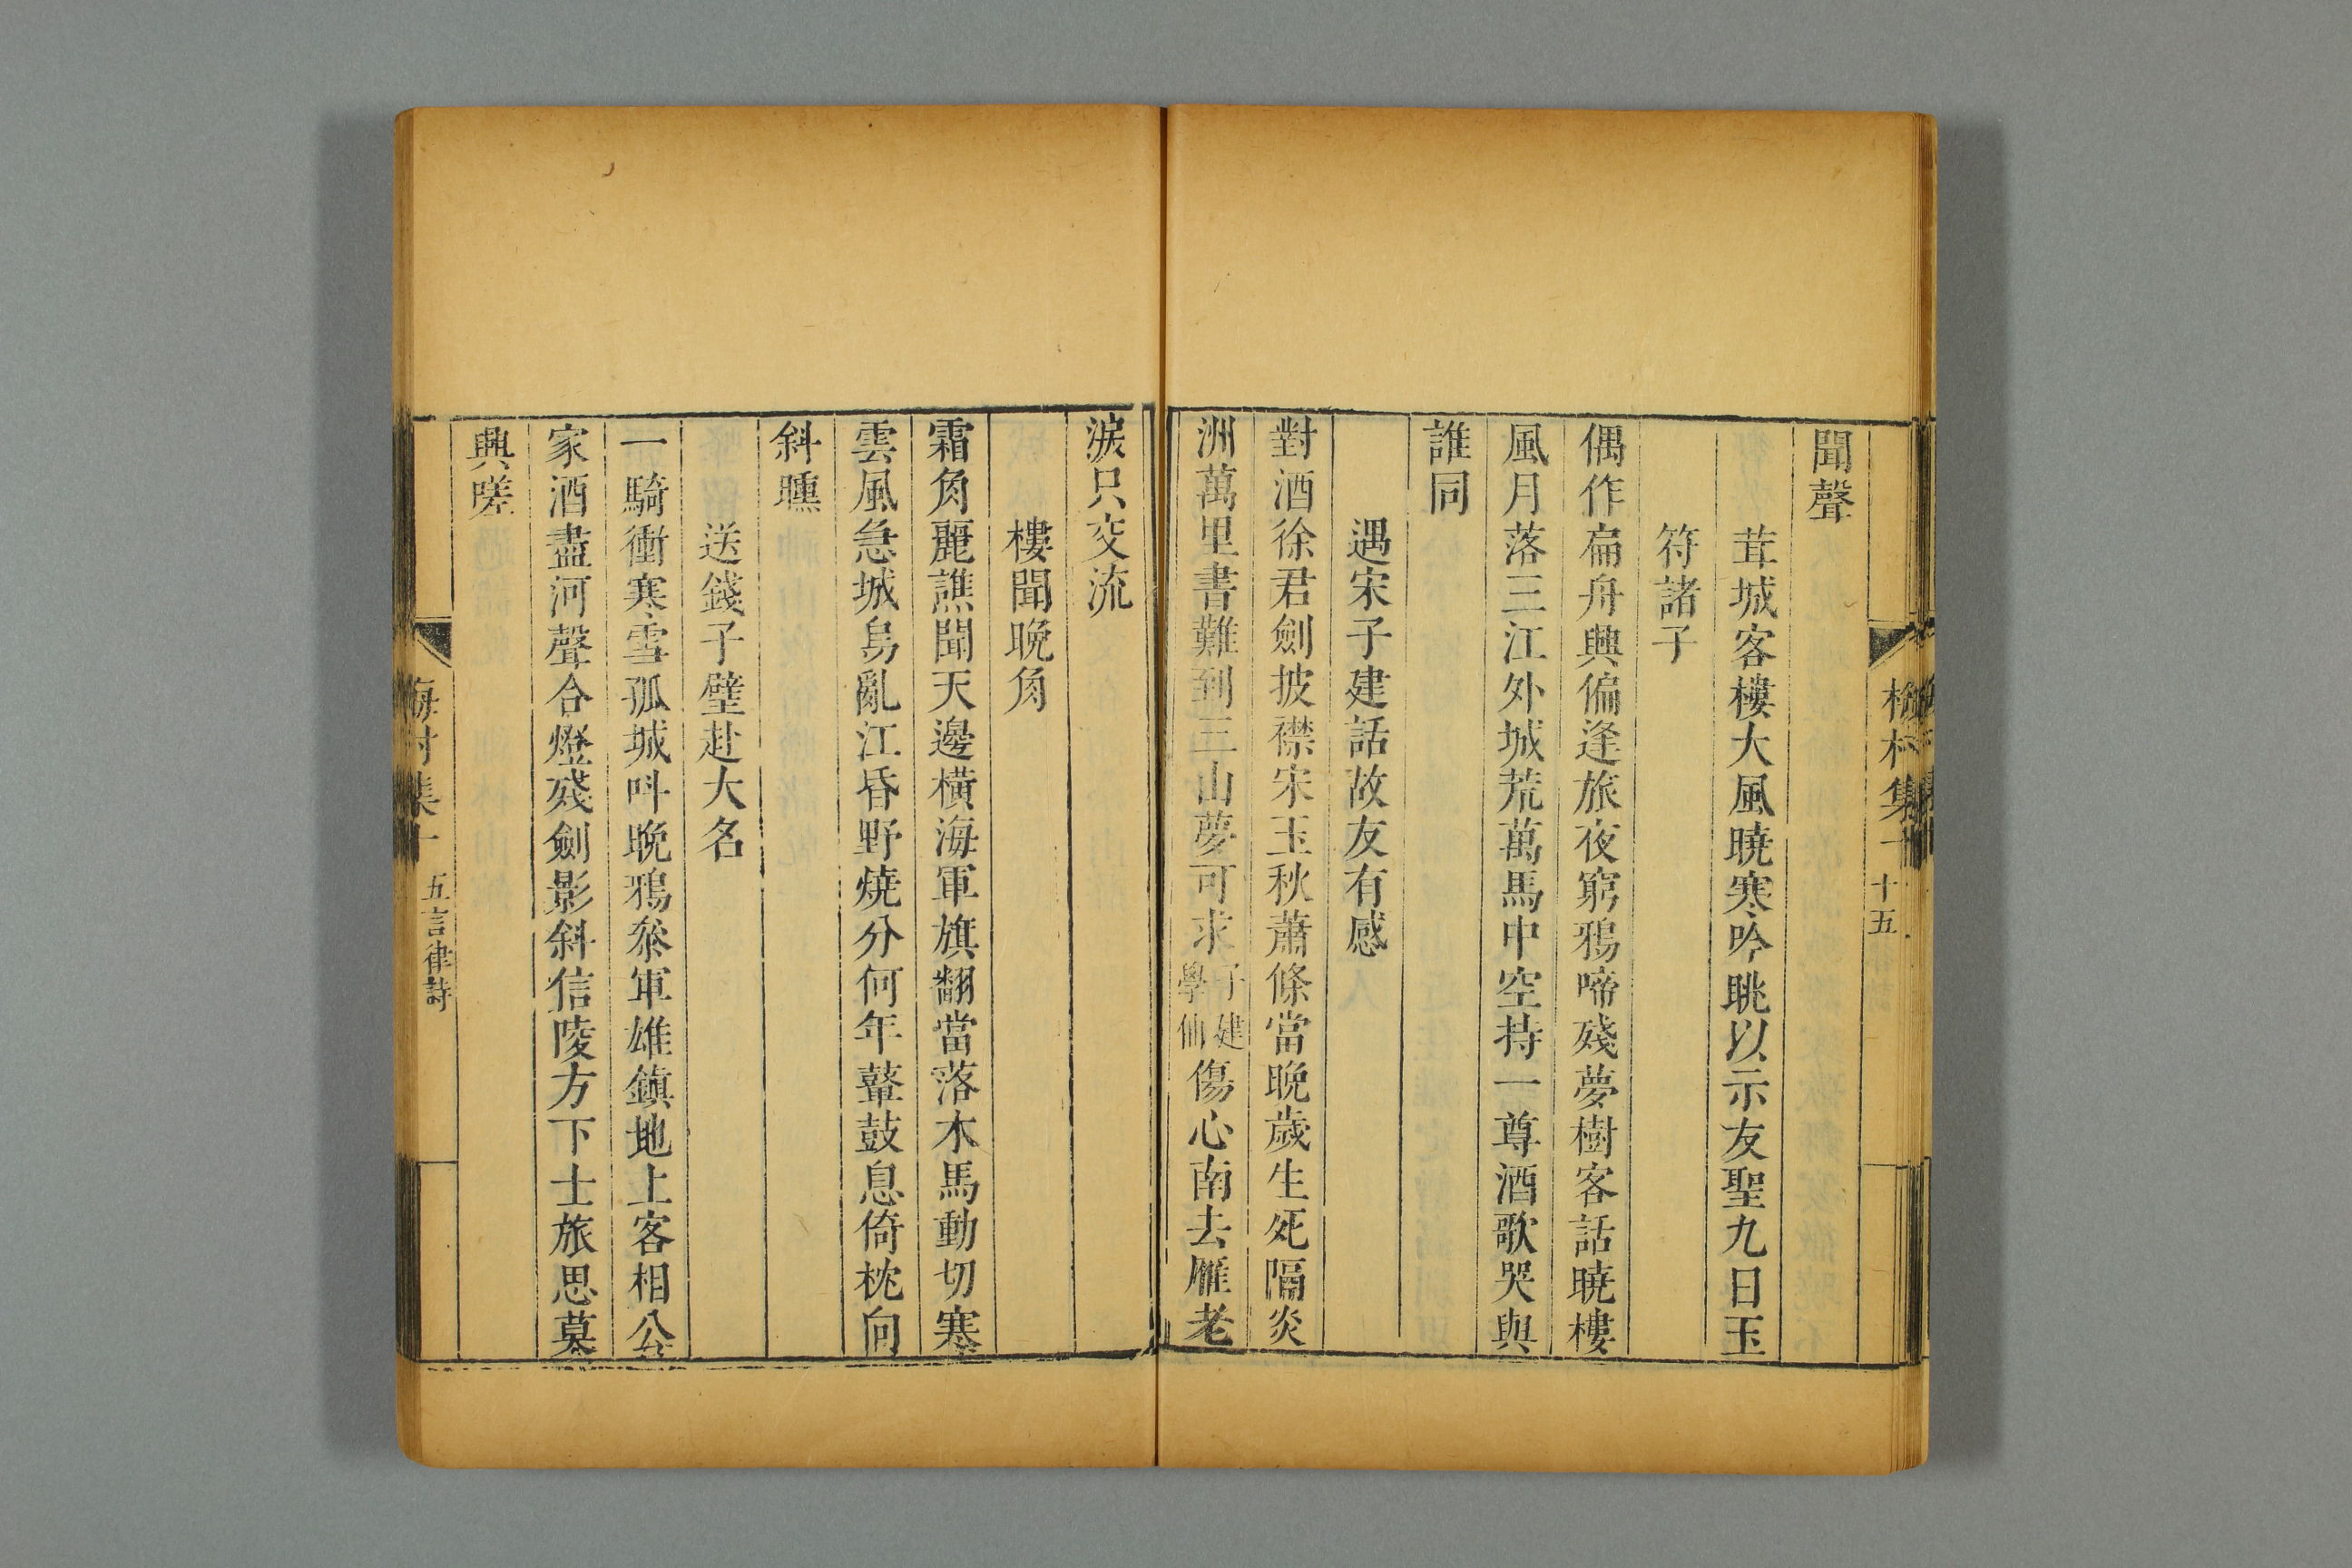 聞聲
茸城客樓大風曉寒吟眺以示友聖九日玉
符諸子
偶作扁舟興偏逢旅夜窮鴉啼殘夢樹客話曉樓
風月落三江外城荒萬馬中空持一尊酒歌哭與
誰同
遇宋子建話故友有感
對酒徐君劍披襟宋玉秋蕭條當晚歲生死隔炎
洲萬里書難到三山夢可求子建學仙傷心南去雁老
淚只交流
樓聞晚角
霜角麗譙聞天邊橫海軍旗翻當落木馬動切寒
雲風急城烏亂江昏野燒分何年鼙鼓息倚枕向
斜曛
送錢子璧赴大名
一騎衝寒雪孤城叫晚鴉叅軍雄鎮地上客相公
家酒盡河聲合燈殘劍影斜信陵方下士旅思莫
興嗟
集十
五言律詩
村集十
十五